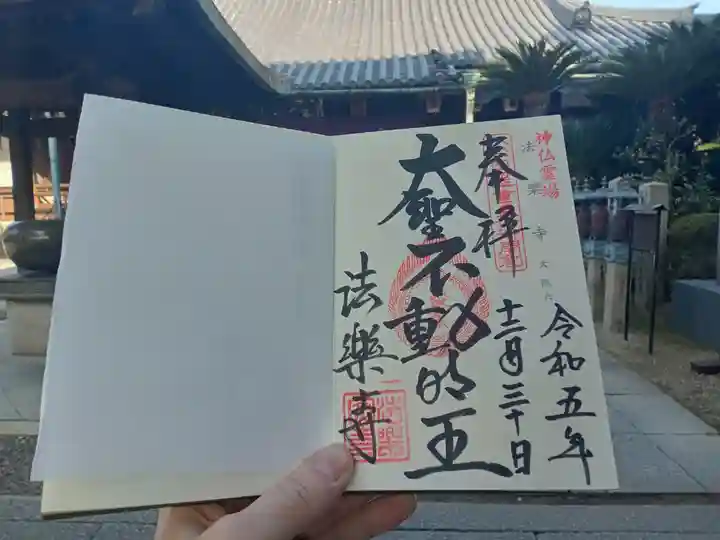 神仏霊場
法楽寺 大阪六
令和五年
奉拝
十二月三十日
大聖不動明王
法樂寺